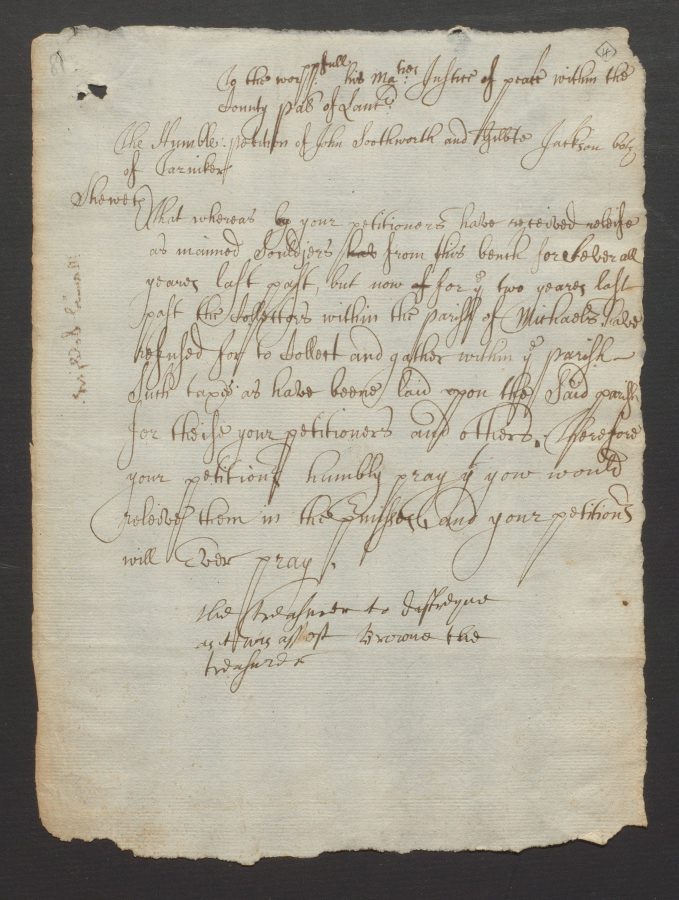 4
To the worppfull his Maties Justice of peace within the
County Pal of Lancr
The Humble petition of John Soothworth and Gilbte Jackson both
of Carniker
Sheweth
That whereas by your petitioners have received releife
as maimed Souldjers from this bench for severall
yeares last past, but now for ye two yeares last
past the Collectors within the parish of Michaells have
refused for to Collect and gather within ye parish
Such taxes as have beene laid upon the Said parish
for theise your petitioners and others. Therefore
your petitionrs humbly pray yt yow would
releive them in the prmisses, and your petitionrs
will Ever pray.
the treasurer to distreyne
as it was assest Browne the
treasurer